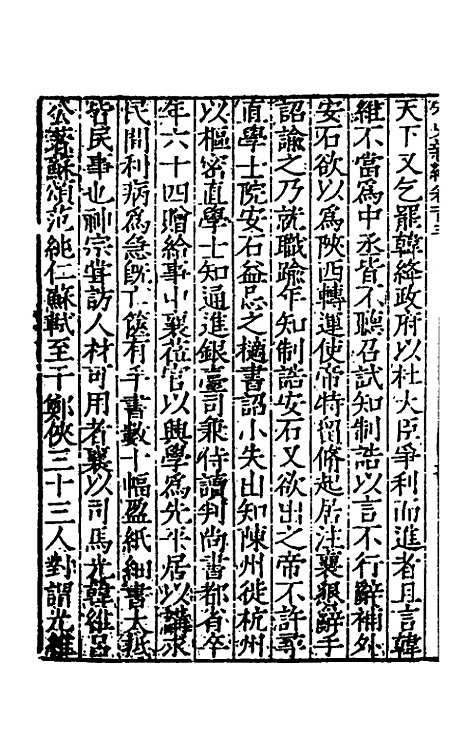 天下又乞罷韓絳政府以杜大臣爭利而進者且言韓
維不當爲中丞皆不聽召試知制誥以言不行辭補外
安石欲以爲陝西轉運使帝特留脩起居注襄懇辭手
詔諭之乃就職踰年知制誥安石又欲出之帝不許尋
直學士院安石益忌之擿書詔小失出知陳州徙杭州
以樞密直學士知通進銀臺司兼侍讀判尚書都省卒
年六十四贈給事中襄莅官以興學爲先平居以講求
民間利病爲急旣亡篋有手書數十幅盈紙細書大抵
皆民事也神宗嘗訪人材可用者襄以司馬光韓維呂
公著蘇頌范純仁蘇軾至于鄭俠三十三人對謂光維